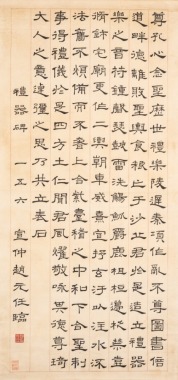 尊孔心念聖歷世禮樂陵遲秦項作亂不尊圖書倍
道畔德離敗聖輿食糧亡于沙丘君於是造立禮器
樂之音符鍾磬瑟鼓雷洗觴觚爵鹿柤梪籩柉禁壺
脩飾宅廟更作二輿朝車威熹宣抒玄汙以注水流
法舊不煩備而不奢上合紫臺稽之中和下合聖制
事得禮儀於是四方土仁聞君風燿敬咏其德尊琦
大人之意逴彌之思乃共立表石
禮器碑 一五六 宣仲趙元任臨